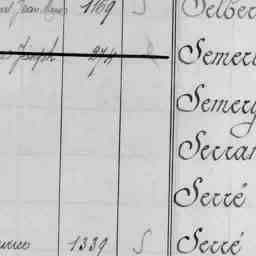 Jean 1169 S Selber
Joseph 274 Semer
Semery
Serran
Serré
1339 S Serré